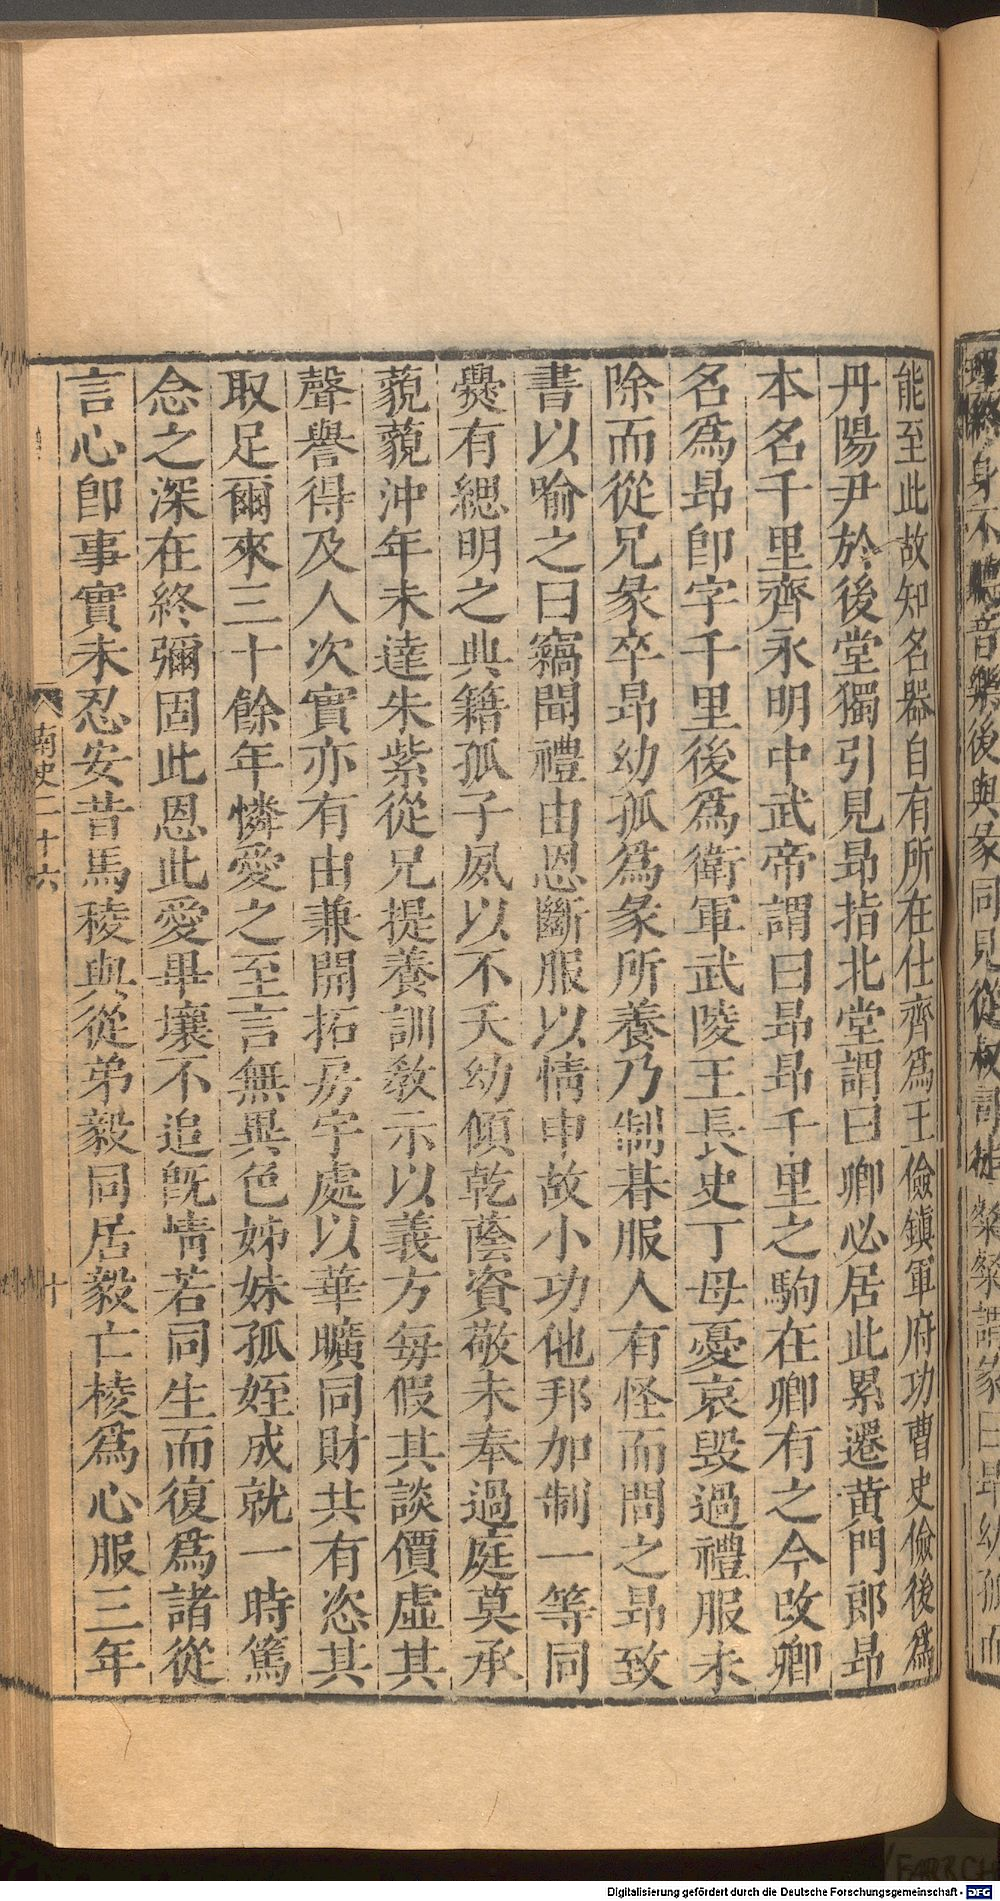 能至此故知名器自有所在仕齊爲王儉鎮軍府功曹史儉後爲
丹陽尹於後堂獨引見昂指北堂謂曰卿必居此累遷黄門郎昂
本名千里齊永明中武帝謂曰昂昂千里之駒在卿有之今改卿
名爲昂卽字千里後爲衛軍武陵王長史丁母憂哀毀過禮服未
除而從兄彖卒昂幼孤爲彖所養乃制朞服人有怪而問之昂致
書以喻之曰竊聞禮由恩斷服以情申故小功他邦加制一等同
爨有緦明之典籍孤子夙以不夭幼傾乾蔭資敬未奉過庭莫承
藐藐沖年未達朱紫從兄提養訓敎示以義方每假其談價虛其
聲譽得及人次實亦有由兼開拓房宇處以華曠同財共有恣其
取足爾來三十餘年憐愛之至言無異色姊妹孤姪成就一時篤
念之深在終彌固此恩此愛畢壤不追旣情若同生而復爲諸從
言心卽事實未忍安昔馬稜與從弟毅同居毅亡棱爲心服三年
南史二十六
十
身不聽音樂後與彖同見從叔司徒粲粲謂彖曰昂幼孤而
Digitalisierung gefördert durch die Deutsche Forschungsgemeinschaft - DFG